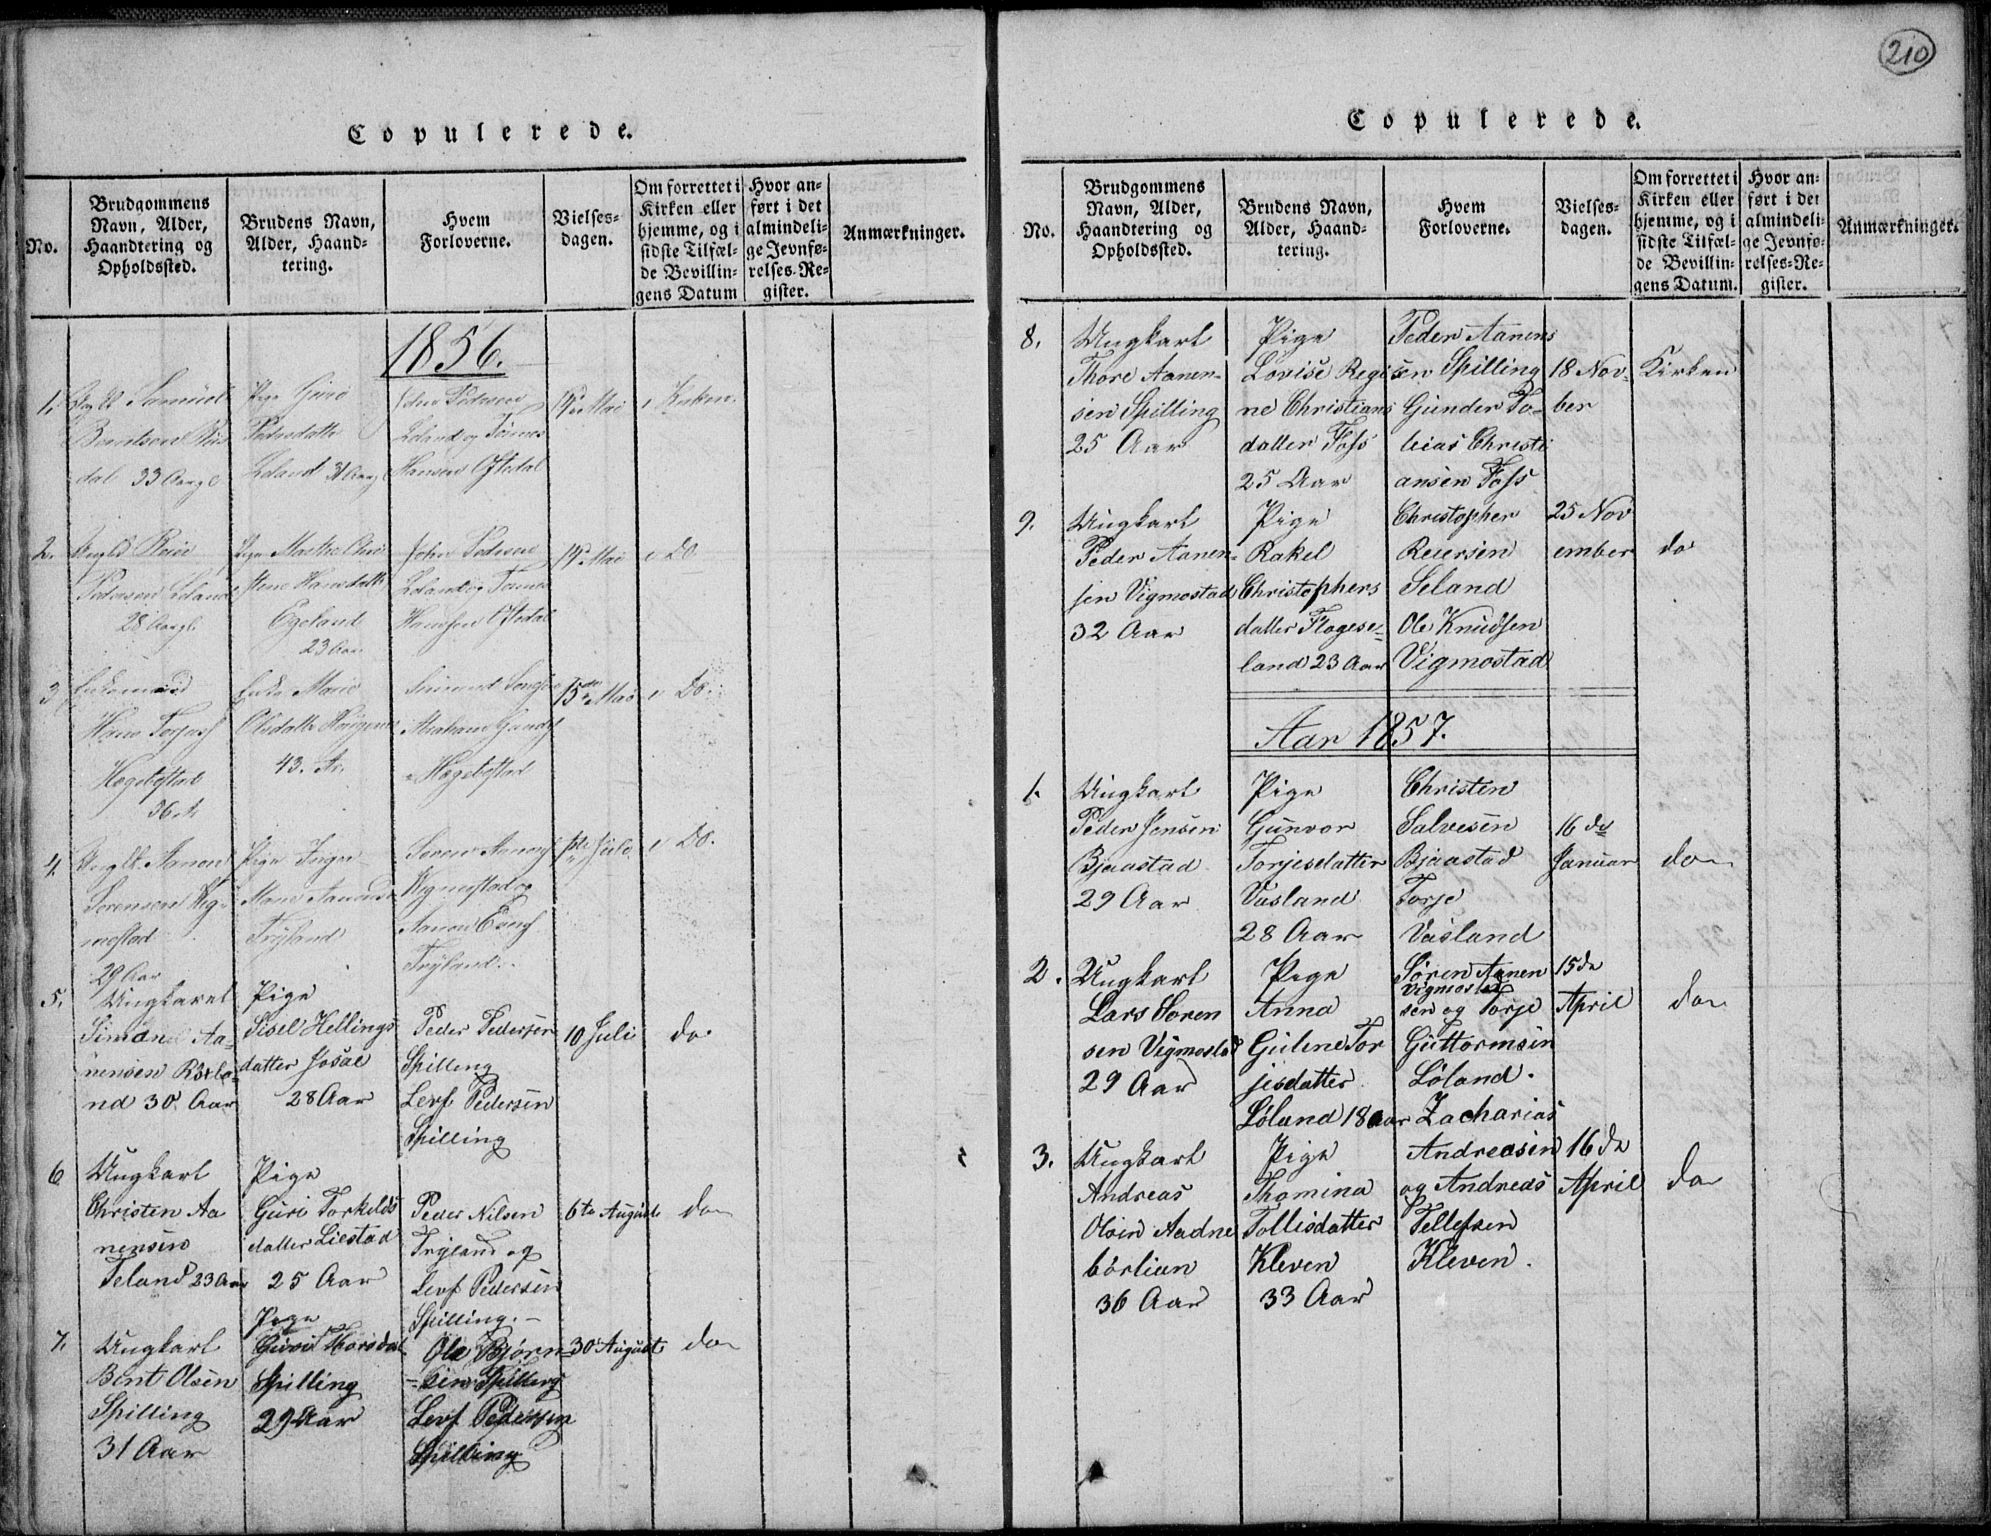 210
Copulerede.
No.
Brudgommens
Navn, Alder,
Haandtering og
Opholdssted.
Brudens Navn,
Alder, Haand-
tering.
Hvem
Forloverne.
Vielses-
dagen.
Om forrettet i
Kirken eller
hjemme, og i
sidste Tilfæl-
de Bevillin-
gens Datum
Hvor an-
ført i det
almindeli-
ge Jevnfø-
relses-Re-
gister.
Anmærkninger.
1856.
1.
Samuel
Berntsen
dal 33 Aar gl
Pige Guro
Pedersdatter
Leland 31 Aar gl
John Pedersen
Leland og Tønnes
Hansen Oftedal
14de Mai
i Kirken.
2.
Pedersen Leland
28 Aar gl.
Pige Marthe Chri
stene Hansdatter
Egeland
23 Aar
John Pedersen
Leland og Tønnes
Hansen Oftedal
14de Mai
i Do
3
Enkemand
Hans
Hægebostad
36 A
Enke Marie
Olsdatter
43. Ar.
Abraham
Hægebostad
15de Mai
i Do.
4.
Ungk. Aanen
Sørensen Vig-
mostad
29 Aar
Pige Inger
Marie
Trÿland
Søren
Vigmostad og
Aanen
Trÿland.
Julі
i Do.
5.
Ungkarl
Simon Aa-
nensen
nd 30 Aar
Pige
Sisel Hellings
datter Josal
28 Aar
Peder Pedersen
Spilling
Leif Pedersen
Spilling
10 Juli
do
6
Ungkarl
Christen Aa
nensen
Teland 23 Aar
Pige
Guri Torkelds
datter Liestad
25 Aar
Peder Nilsen
Trÿland og
Leif Pedersen
Spilling.-
6te August
do
7.
Ungkarl
Bent Olsen
Spilling
31 Aar
Pige
Spilling
29 Aar
Ole Bjørn
sen Spilling
Leif Pedersen
Spilling
30 August
do
Copulerede.
No.
Brudgommens
Navn, Alder,
Haandtering og
Opholdssted.
Brudens Navn,
Alder, Haand-
tering.
Hvem
Forloverne.
Vielses-
dagen.
Om forrettet i
Kirken eller
hjemme, og i
sidste Tilfæl-
de Bevillin-
gens Datum.
Hvor an-
ført i det
almindeli-
ge Jevnfø-
relses-Re-
gister.
Anmærkninger.
8.
Ungkarl
Thore Aanen-
sen Spilling
25 Aar
Pige
Lovise Regi
ne Christians
datter Foss
25 Aar
Peder Aanens
sen Spilling
Gunder To-
bias Christi
ansen Foss
18 Nov-
ber
Kirken
9.
Ungkarl
Peder Aanen-
sen Vigmostad
32 Aar
Pige
Rakel
Christophers
datter Flogese-
land 23 Aar
Christopher
Reiersen
Seland
Ole Knudsen
Vigmostad
25 Nov
ember
do
Aar 1857.
1.
Ungkarl
Peder Jensen
Bjaastad
29 Aar
Pige
Gunvor
Torjesdatter
Vasland
28 Aar
Christen
Salvesen
Bjaastad
Torje
Vasland
16 de
Januar
do
2.
Ungkarl
Lars Søren
sen Vigmostad
29 Aar
Pige
Anna
Guline Tor
jesdatter
Løland 18 Aar
Søren Aanen
Vigmostad
sen og Torje
Guttormsen
Løland.
15de
April
do
3.
Ungkarl
Andreas
Olsen Aadne
børlien
36 Aar
Pige
Thomina
Tollisdatter
Kleven
33 Aar
Zacharias
Andreasen
og Andreas
Tellefsen
Kleven.
16 de
April
do